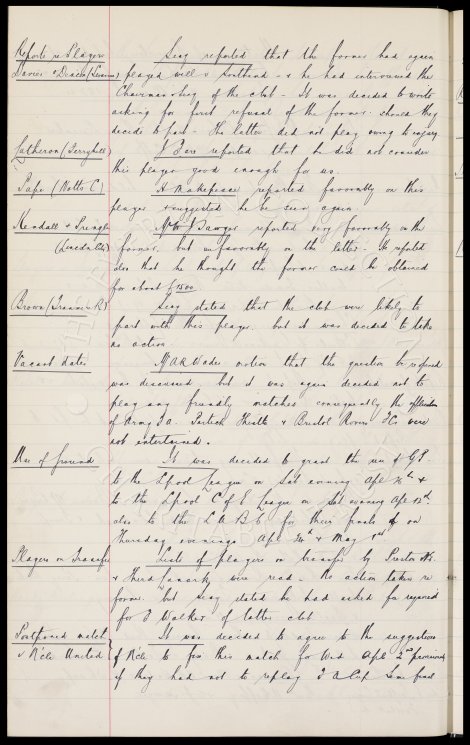 Reports re Players Secy reported that the former had again
Davies & Deacon (Swansea) played well v Scotland - & he had interviewed the
Chairman & Secy of the club - It was decided to write
asking for first refusal of the former should they
decide to part - the latter did not play owing to injury
Latheron (Ferryhill) J Dare reported that he did not consider
this player good enough for us.
Pape (Notts C) H Makepeace reported favorably on this
player & suggested he be seen again.
Kendall & Pringle Mr W J Sawyer reported very favorably on the
(Lincoln City) former, but unfavorably on the latter - He reported
also that he thought the former could be obtained
for about £1500
Brown (Tranmere R) Secy stated that the club were likely to
part with this player, but it was decided to take
no action
Vacant dates Mr A R Wade motion that the question be reopened
was discussed but it was again decided not to
play any friendly matches consequently the offers
of Army F.A. Partick Thistle & Bristol Rovers FCs were
not entertained.
Use of ground It was decided to grant the use of G.P.
to the Lpool League on Sat evening Apl &
to the Lpool C of E League on Sat evening Apl 12th
also to the for their finals on
Thursday evenings Apl 24th & May 1st
Players on Transfer Lists of players on transfer by Preston N.E.
& Third Lanark were read - No action taken re
former but secy stated he had asked for required
for E Walker of latter club
Postponed match It was decided to agree to the suggestion
v N'cle United of N'cle to fix this match for Wed Apl 2nd provided
if they had not to replay F A Cup Semi final